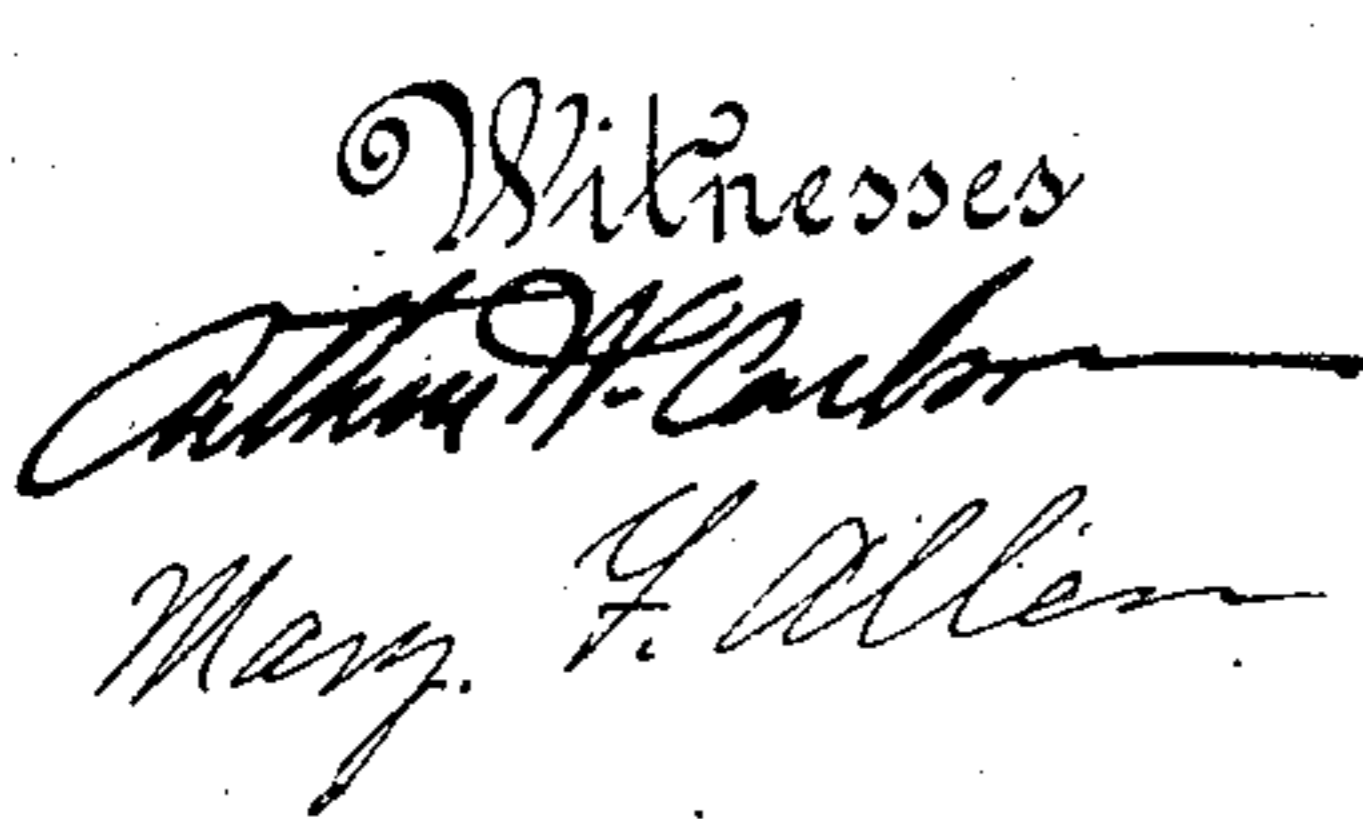 Witnesses
Arthur W. Carlson
Mary. F. Allen